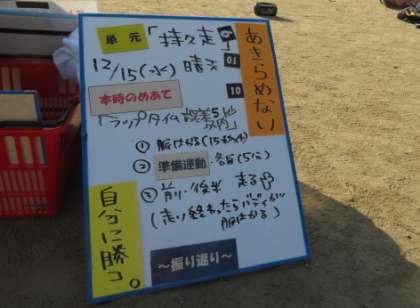 単元「持久走」
あきらめない
12/15(水) 晴天
10
本時のめあて
「ラップタイム 誤差5秒以内」
① 脈はかる(15秒×4)
② 準備運動・各自(5分)
③ 前り・後半 走る
(走り終わったらバディが
脈はかる)
自分に勝つ。
～振り返り～